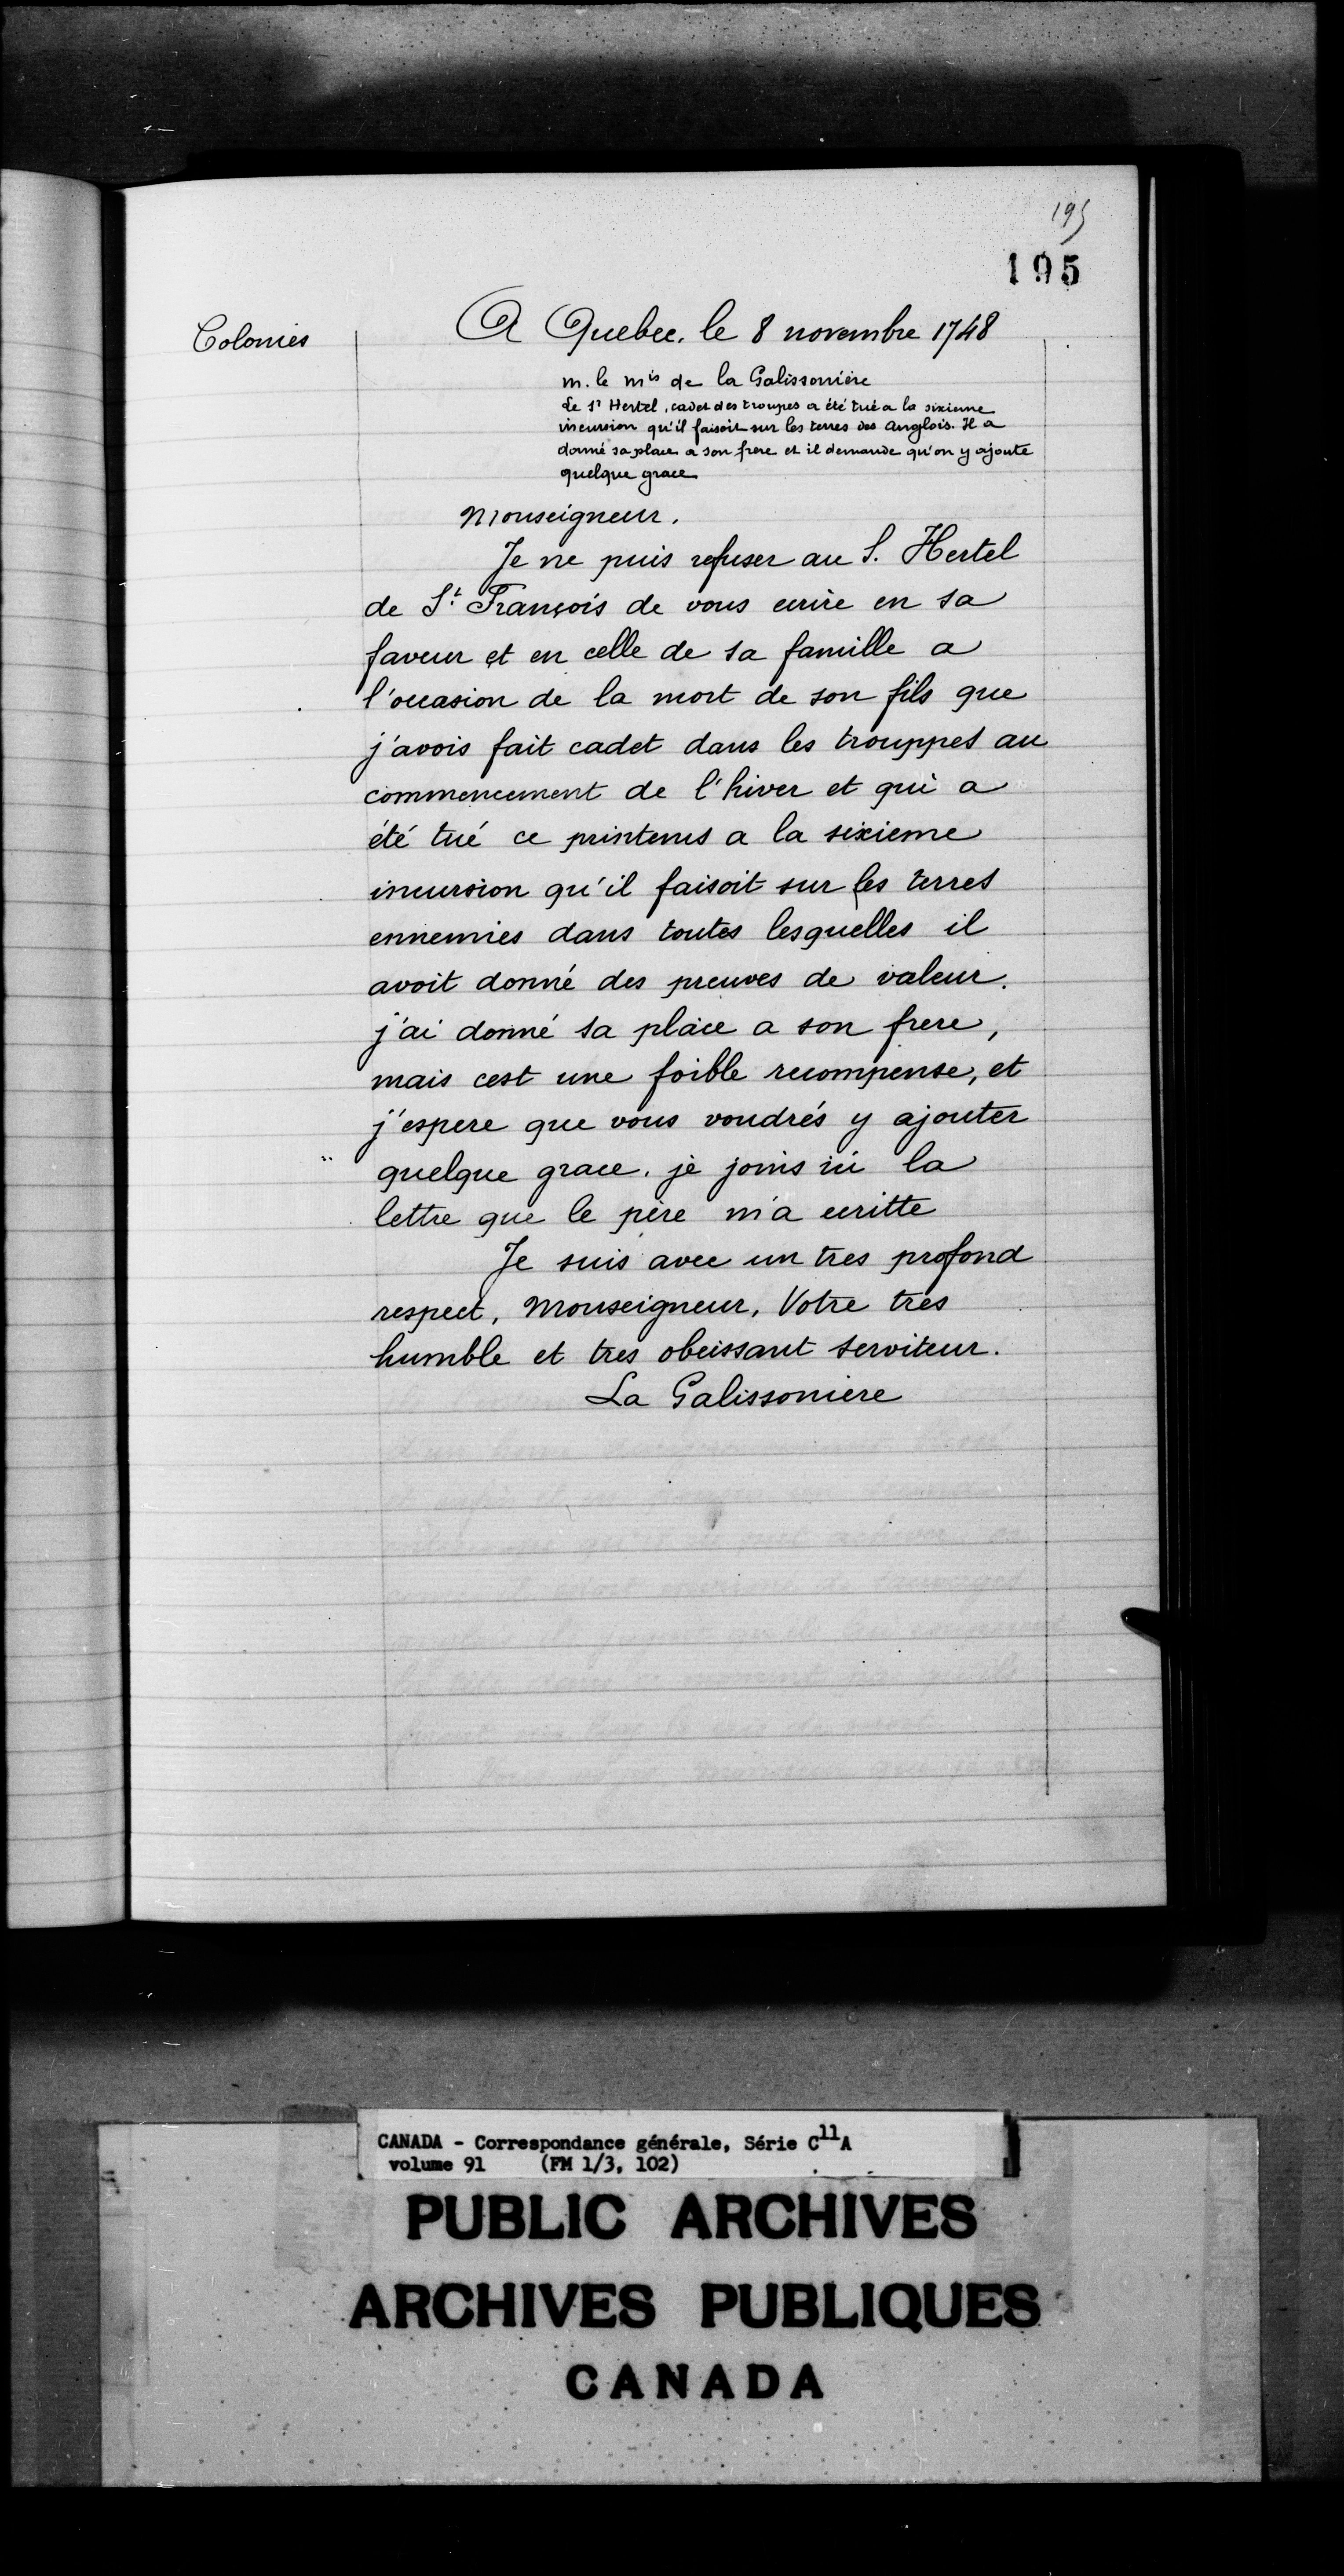 195
195
Colonies
A Quebec, le 8 novembre 1748
m. le mis de la Galissonière
Le Sr Hertel, cadet des troupes a été tué a la sixieme
incursion qu'il faisoit sur les terres des Anglois. Il a
donné sa place a son frere et il demande qu'on y ajoute
quelque grace
Monseigneur.
Je ne puis refuser au S. Hertel
de St. François de vous ecrire en sa
faveur et en celle de sa famille a
l'occasion de la mort de son fils que
j'avois fait cadet dans les trouppes au
commencement de l'hiver et qui a
été tué ce printems a la sixieme
incursion qu'il faisoit sur les terres
ennemies dans toutes lesquelles il
avoit donné des preuves de valeur.
j'ai donné sa place a son frere,
mais cest une foible recompense, et
j'espere que vous voudrés y ajouter
quelque grace. je joins ici la
lettre que le père m'a ecritte
Je suis avec un tres profond
respect, Monseigneur, Votre tres
humble et tres obeissant serviteur.
La Galissoniere
CANADA - Correspondance générale, Série C11A
volume 91 (FM 1/3, 102)
PUBLIC ARCHIVES
ARCHIVES PUBLIQUES
CANADA